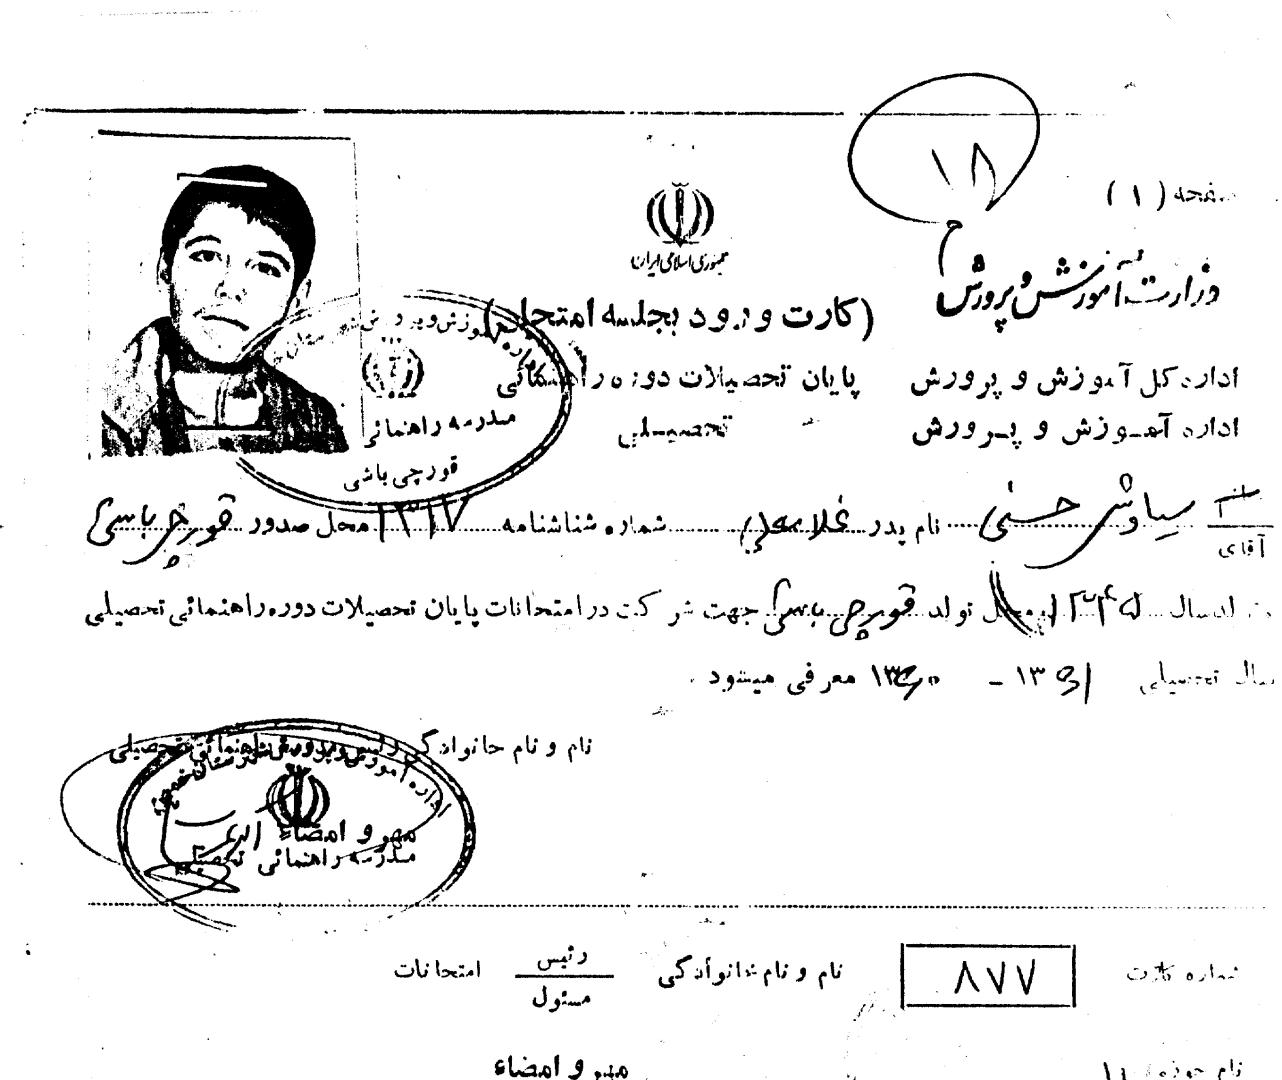 صفحه (۱)
۱۸
جمهوری اسلامی ایران
وزارت آموزش و پرورش
(کارت ورود بجلسه امتحان)
اداره کل آموزش و پرورش
پایان تحصیلات دوره راهنمائی
اداره آموزش و پرورش
تحصیلی
مدرسه راهنمائی
قورچی باشی
آقای سیاوش حسنی نام پدر غلامعلی شماره شناسنامه ۱۳۱۷ محل صدور قورچی باشی
متولد سال محل تولد قورچی باشی جهت شرکت در امتحانات پایان تحصیلات دوره راهنمائی تحصیلی
سال تحصیلی ۱۳۶۱ - ۱۳۶۰ معرفی میشود .
نام و نام خانوادگی رئیس مدرسه راهنمائی تحصیلی
مهر و امضاء
مدرسه راهنمائی تحصیلی
شماره کارت ۸۷۷ نام و نام خانوادگی رئیس مسئول امتحانات
نام حوزه
مهر و امضاء